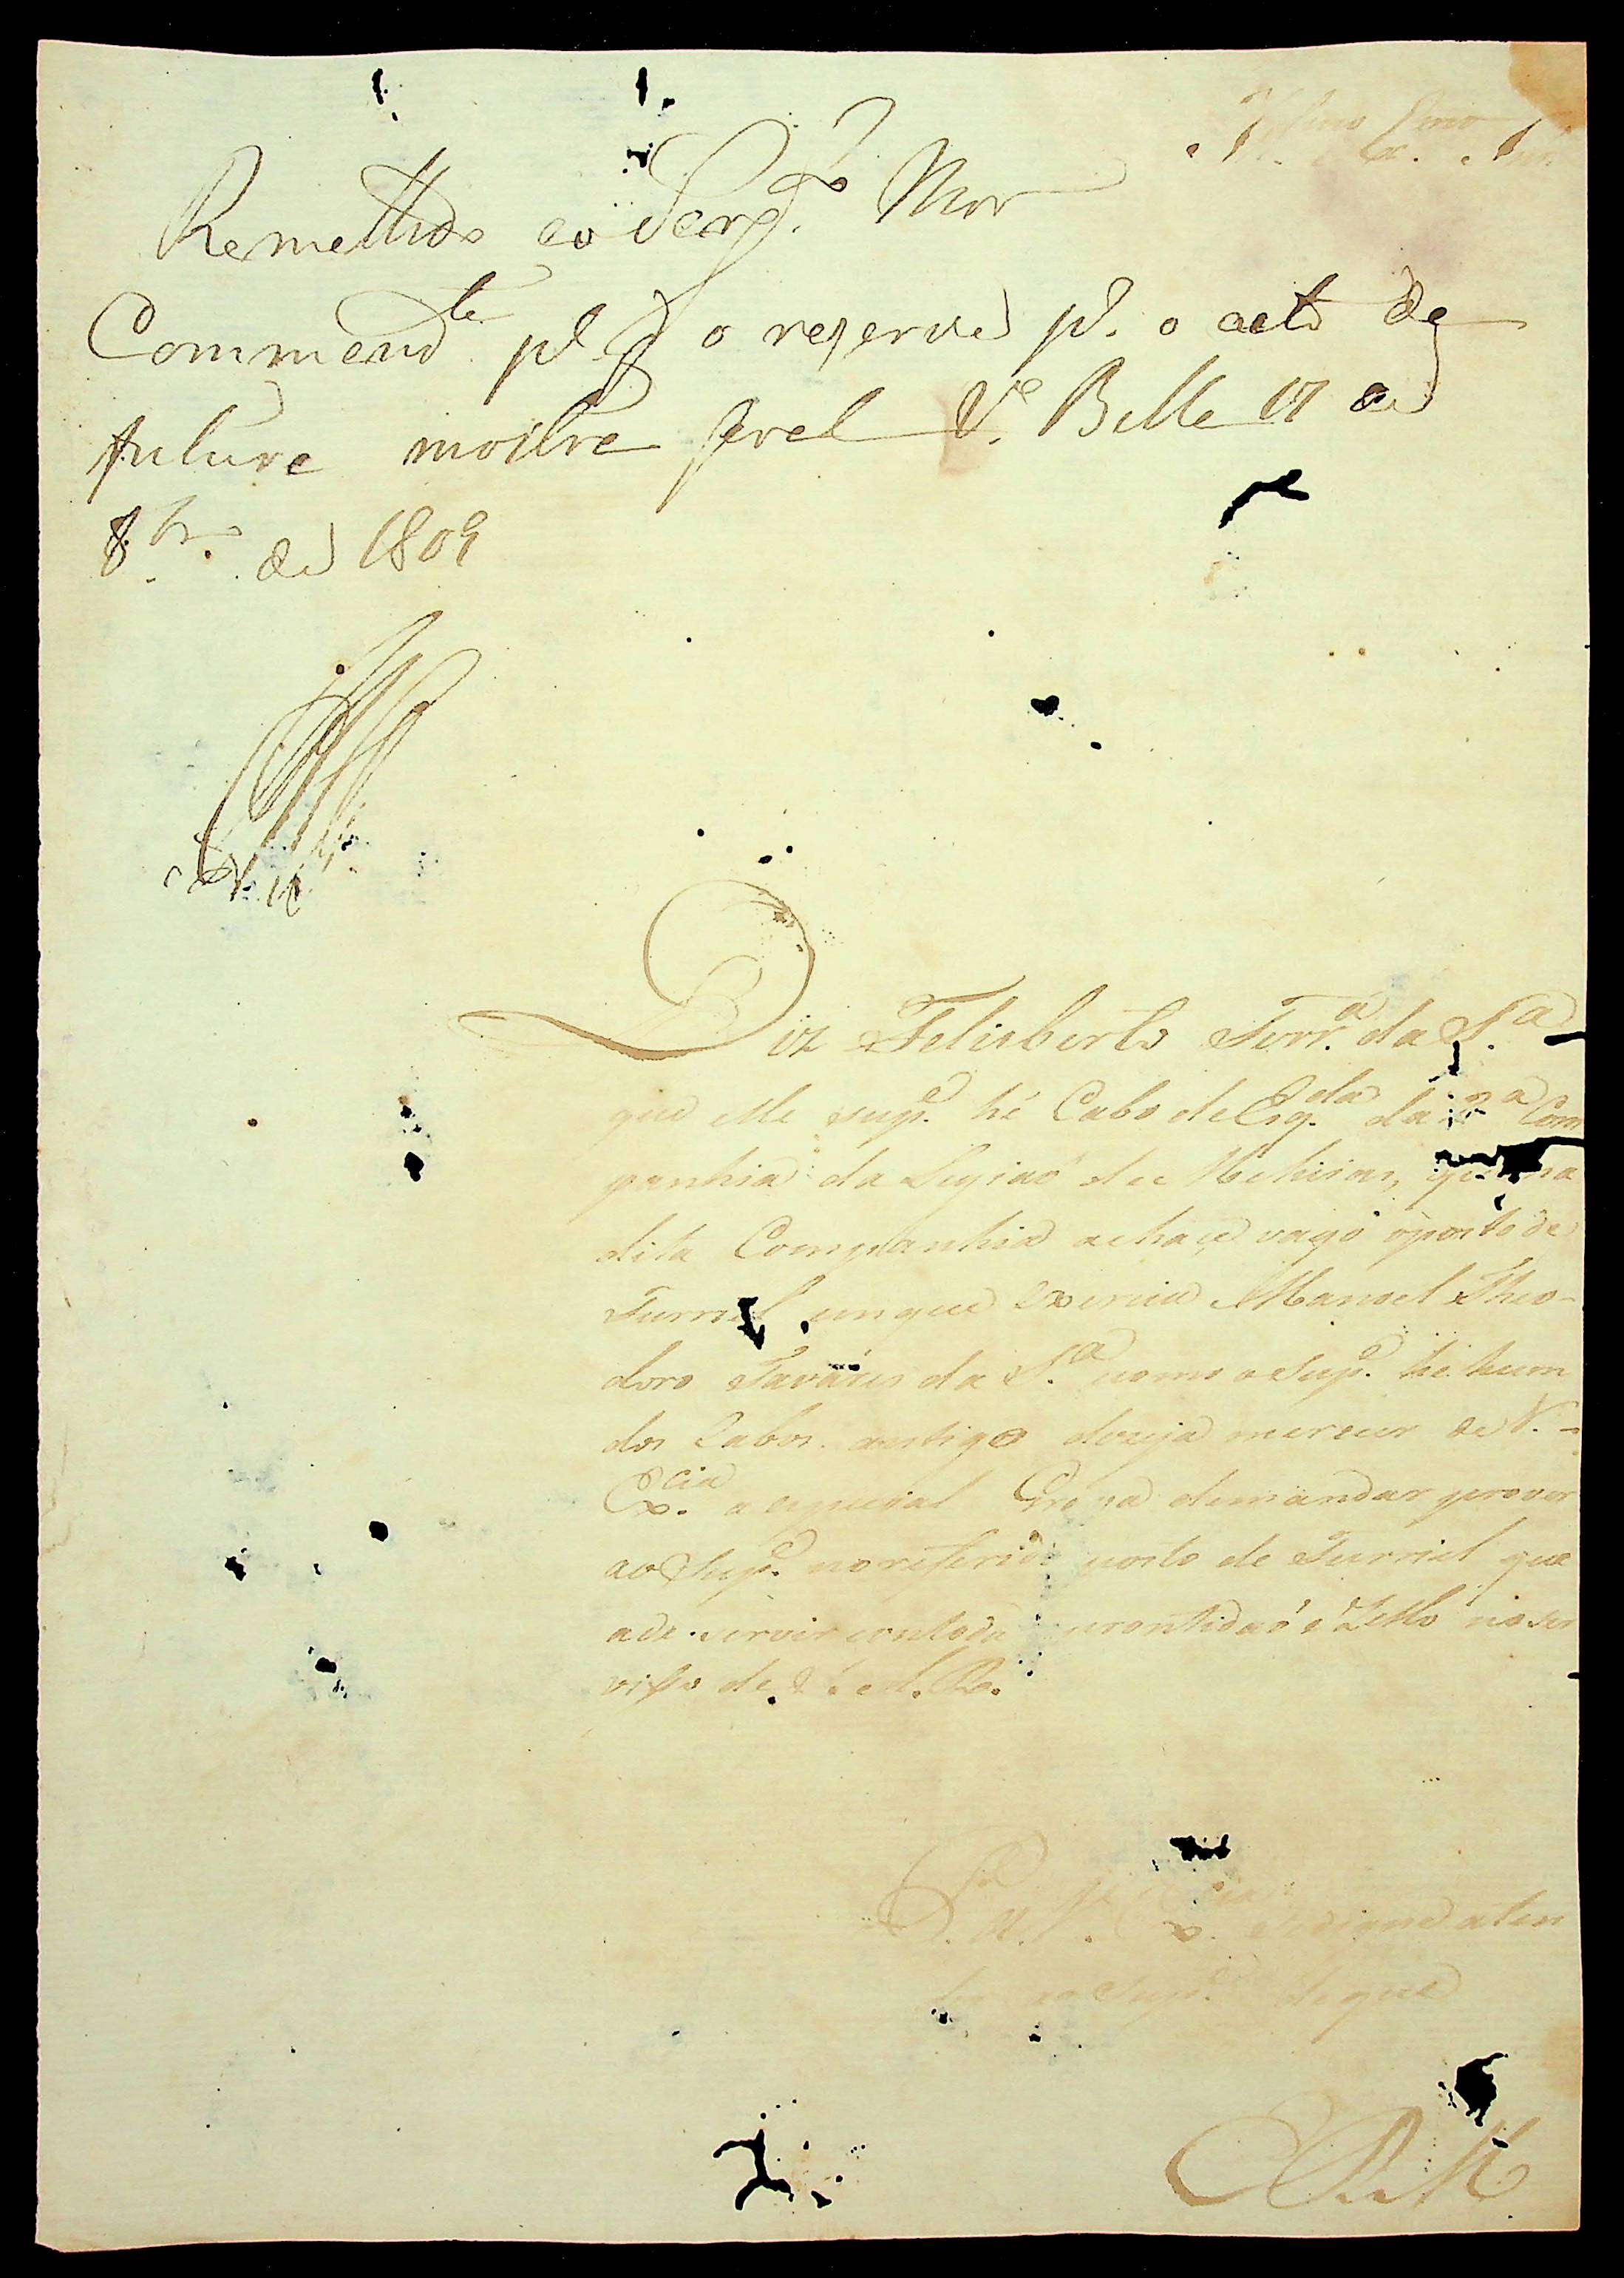 Illmo Exmo
Remettido ao Sarg.to Mor
Command.te p.a q o reserve p.a o acto de
futura mostra geral V.a Bella 17 de
8.bro de 1809
Diz Felisberto Ferr.a da S.a
que elle sup.e hé Cabo de Esq.da da 2.a Com
panhia da Legiaõ de Milicias, que na
dita Companhia achaçe vago o posto de
Furriel, em que exercia Manoel Theo-
doro Tavares da S.a como o Sup.e hé hum
dos Cabos antigo dezeja merecer de V.
Ex.cia a especial Graça de mandar prover
ao Sup.e no referido posto de Furriel que
ade servir com toda prontidaõ e Zello no ser
visso de S. A. R.
P. a V. Ex.cia se digne aten
der ao Sup.e de que
E R M